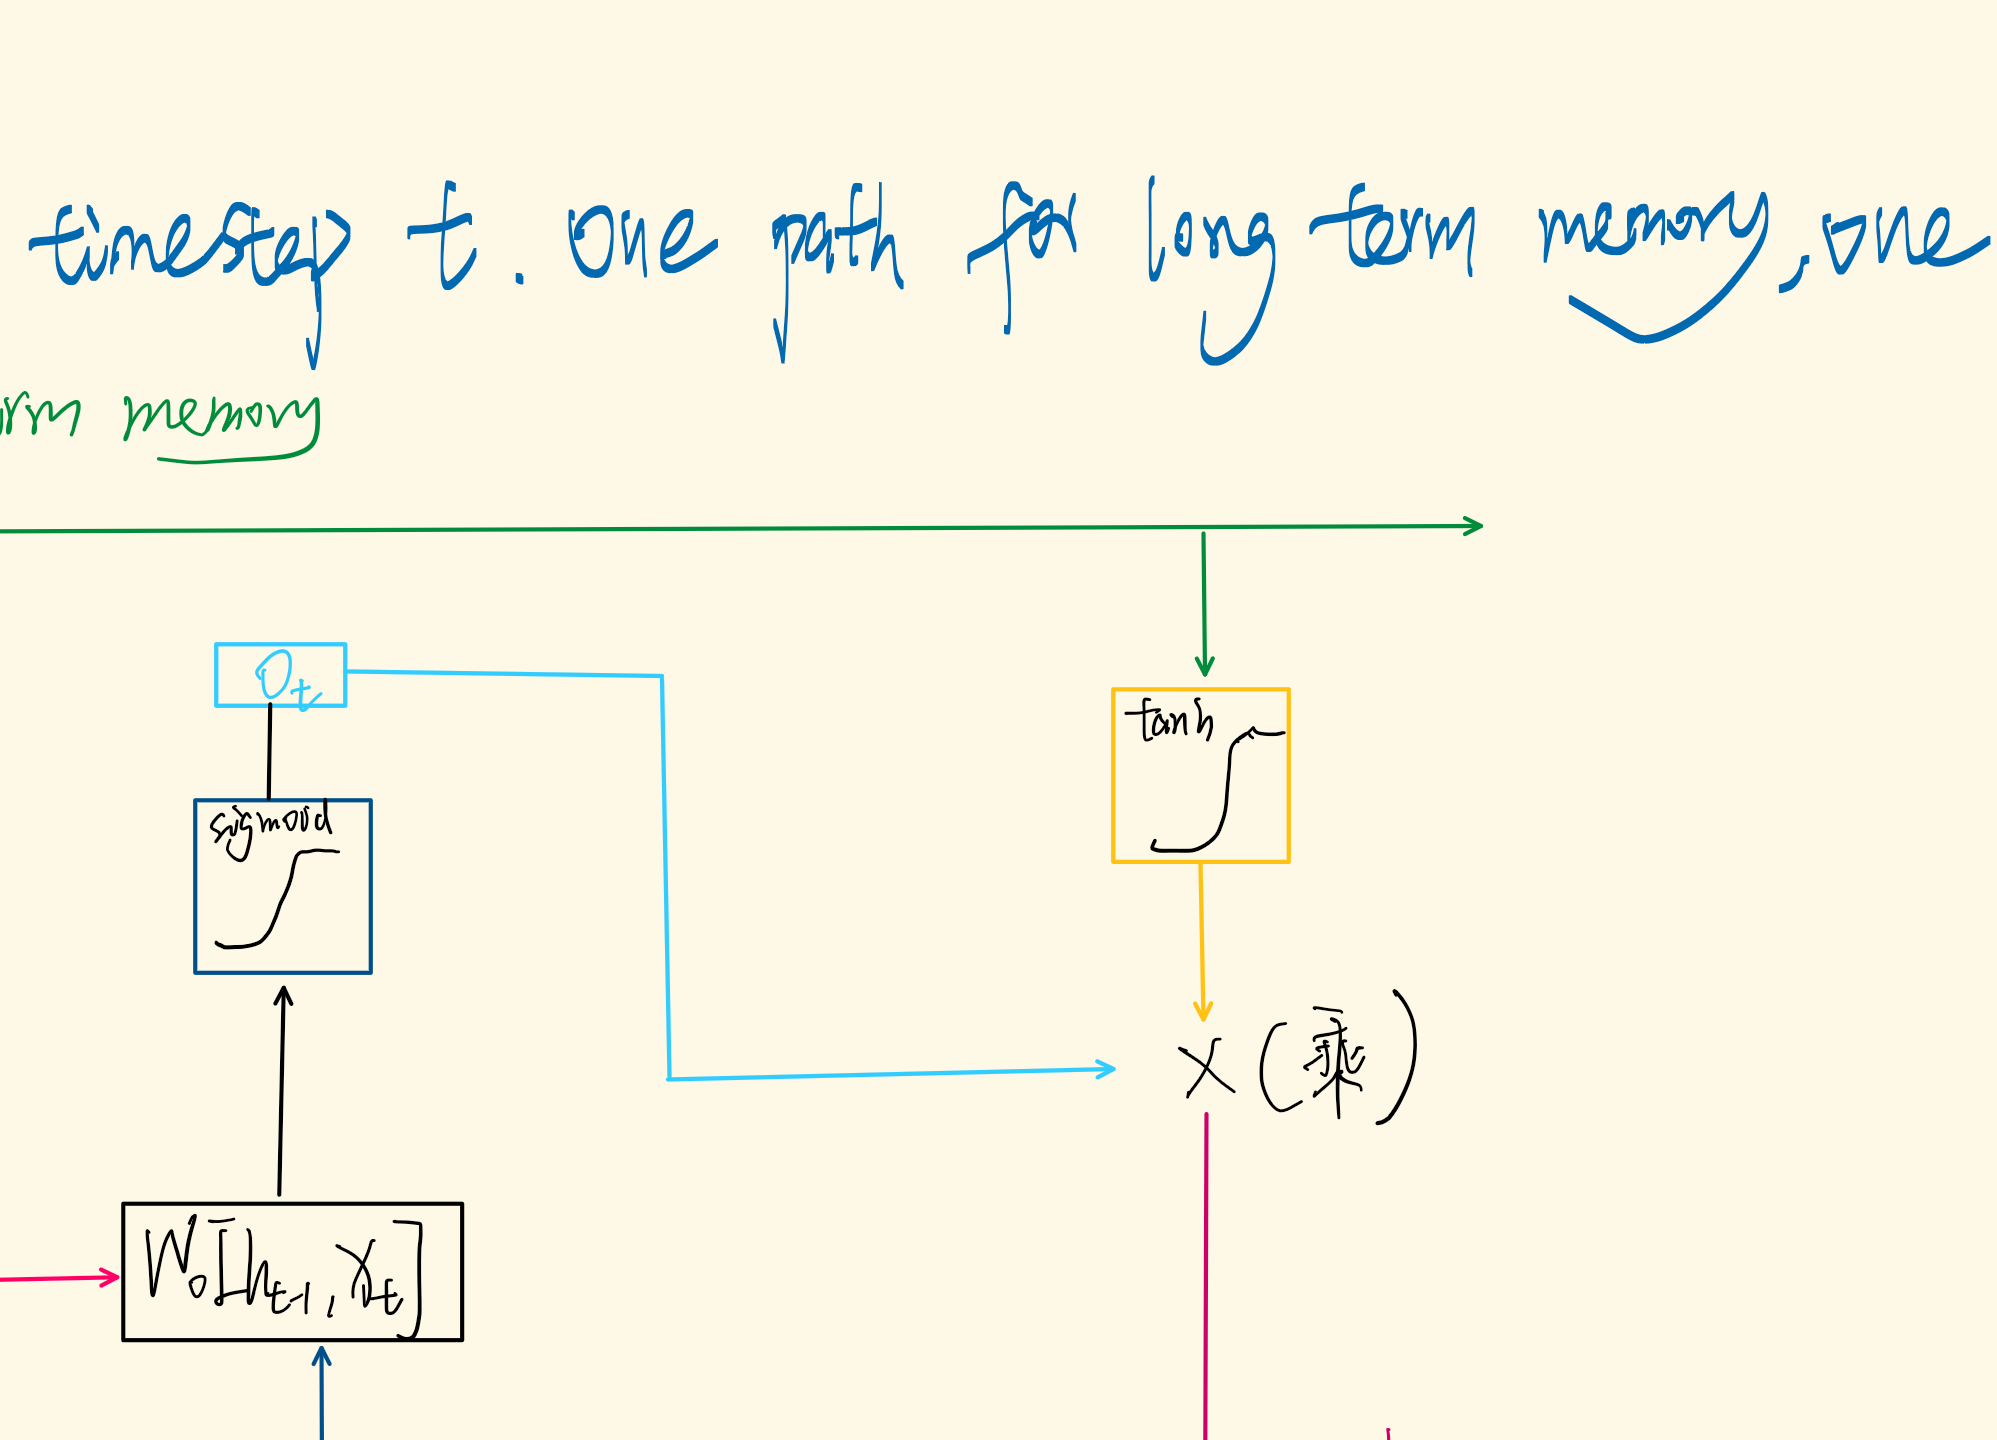 timestep t. One path for long term memory, one
memory
Ot
tanh
sigmoid
× (乘)
Wo[ht-1, xt]